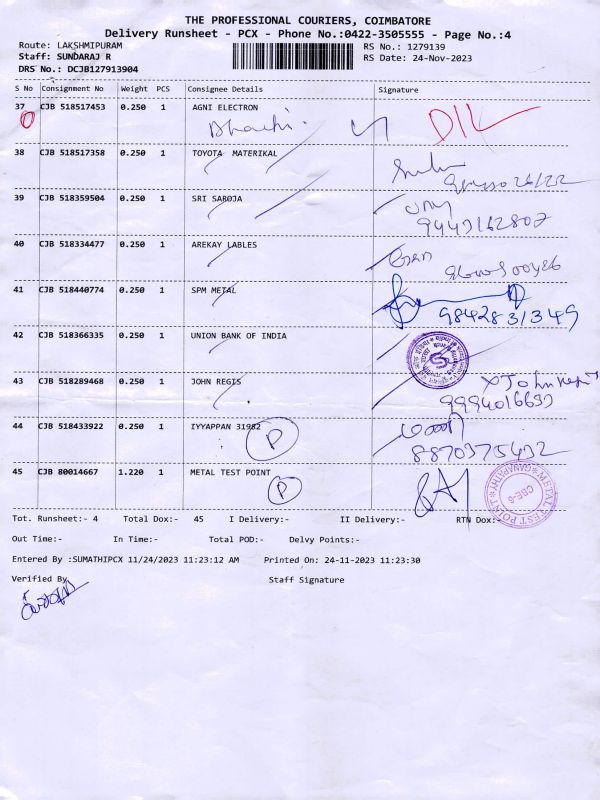 THE PROFESSIONAL COURIERS, COIMBATORE
Delivery Runsheet - PCX - Phone No.:0422-3505555 - Page No.:4
Route: LAKSHMIPURAM
RS No.: 1279139
Staff: SUNDARAJ R
RS Date: 24-Nov-2023
DRS No.: DCJB127913904
S No Consignment No Weight PCS Consignee Details Signature
37 CJB 518517453 0.250 1 AGNI ELECTRON
D/L
38 CJB 518517358 0.250 1 TOYOTA MATERIKAL
39 CJB 518359504 0.250 1 SRI SAROJA
9443162807
40 CJB 518334477 0.250 1 AREKAY LABLES
41 CJB 518440774 0.250 1 SPM METAL
9842831349
42 CJB 518366335 0.250 1 UNION BANK OF INDIA
43 CJB 518289468 0.250 1 JOHN REGIS
X John Regis
44 CJB 518433922 0.250 1 IYYAPPAN 31982
P
8870375432
45 CJB 80014667 1.220 1 METAL TEST POINT
P
METAL TEST POINT
CBE-6
GANAPATHY
Tot. Runsheet:- 4 Total Dox:- 45 I Delivery:- II Delivery:- RTN Dox:-
Out Time:- In Time:- Total POD:- Delvy Points:-
Entered By :SUMATHIPCX 11/24/2023 11:23:12 AM Printed On: 24-11-2023 11:23:30
Verified By
Staff Signature